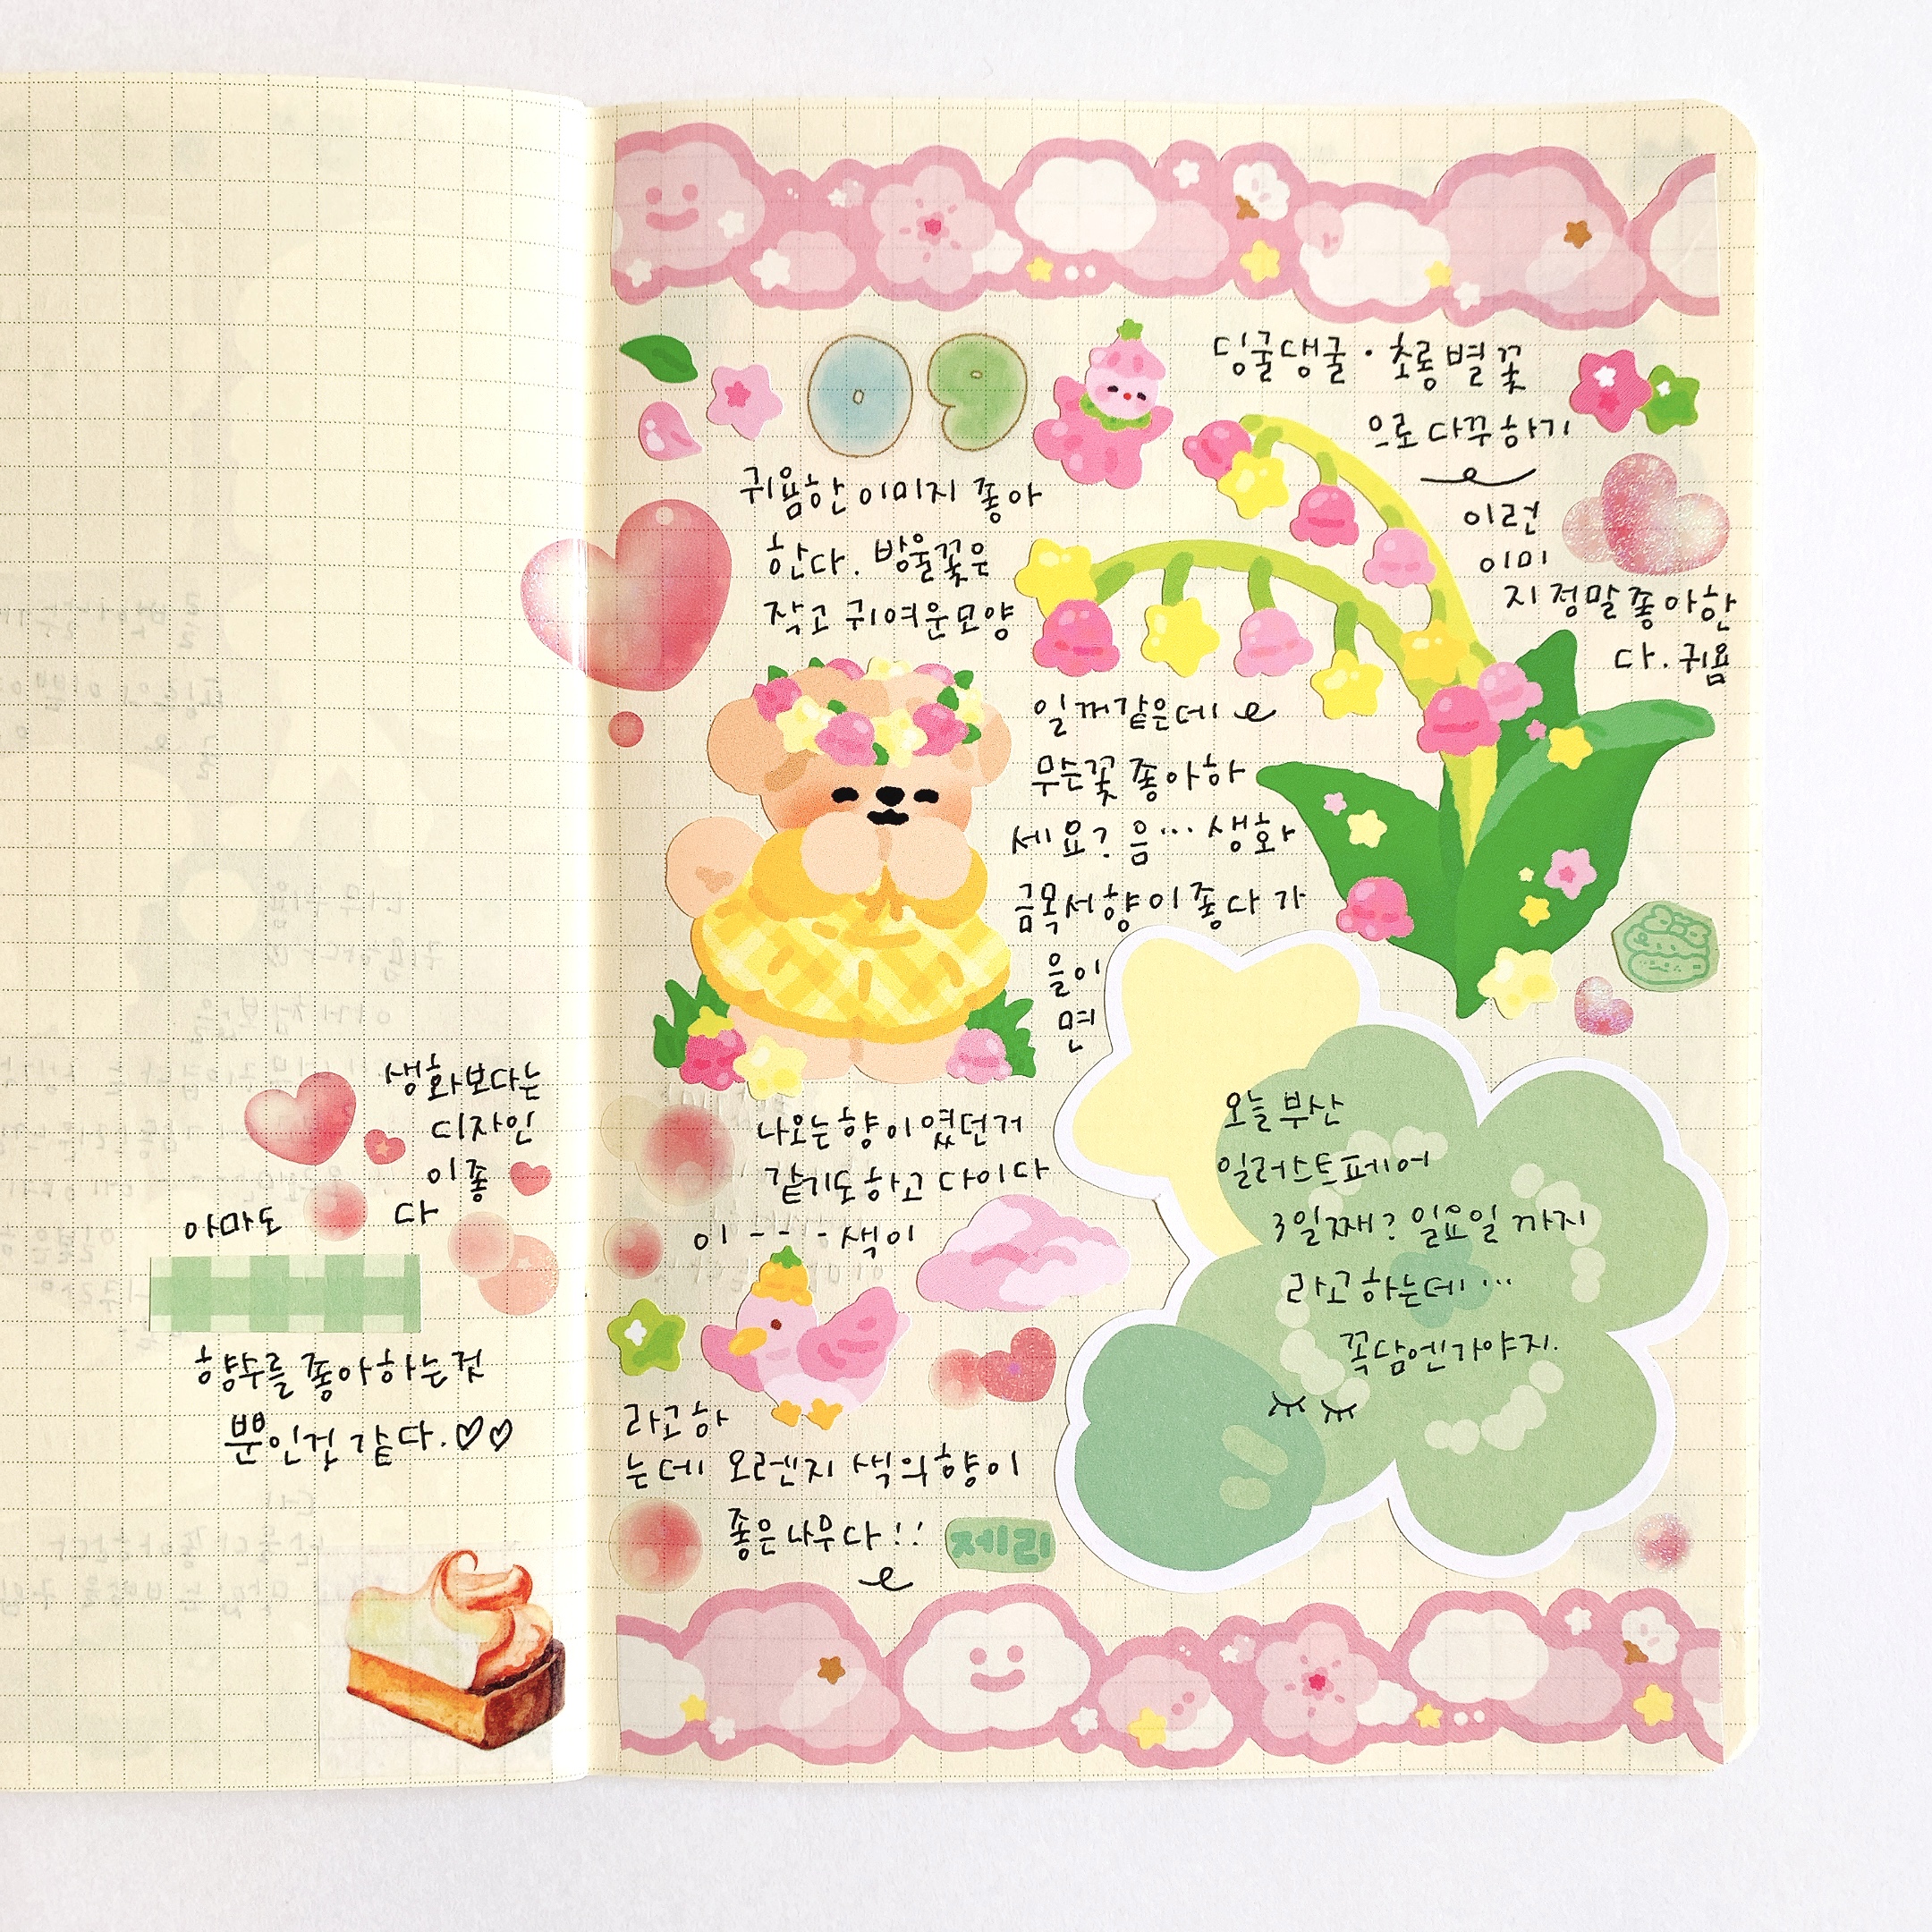 09
딩굴댕굴·초롱별꽃
으로 다꾸하기
이런
이미
지 정말 좋아한
다. 귀욤
귀욤한 이미지 좋아
한다. 방울꽃은
작고 귀여운모양
일꺼같은데
무슨꽃 좋아하
세요? 음... 생화
금목서향이좋다 가
을이
면
나오는향이였던거
같기도하고 다이다
이 - - - 색이
라고하
는데 오렌지 색의향이
좋은나무다!!
제리
오늘 부산
일러스트페어
3일째? 일요일 까지
라고하는데...
꼭담엔가야지.
생화보다는
디자인
이좋
다
아마도
향수를 좋아하는것
뿐인것 같다.♡♡